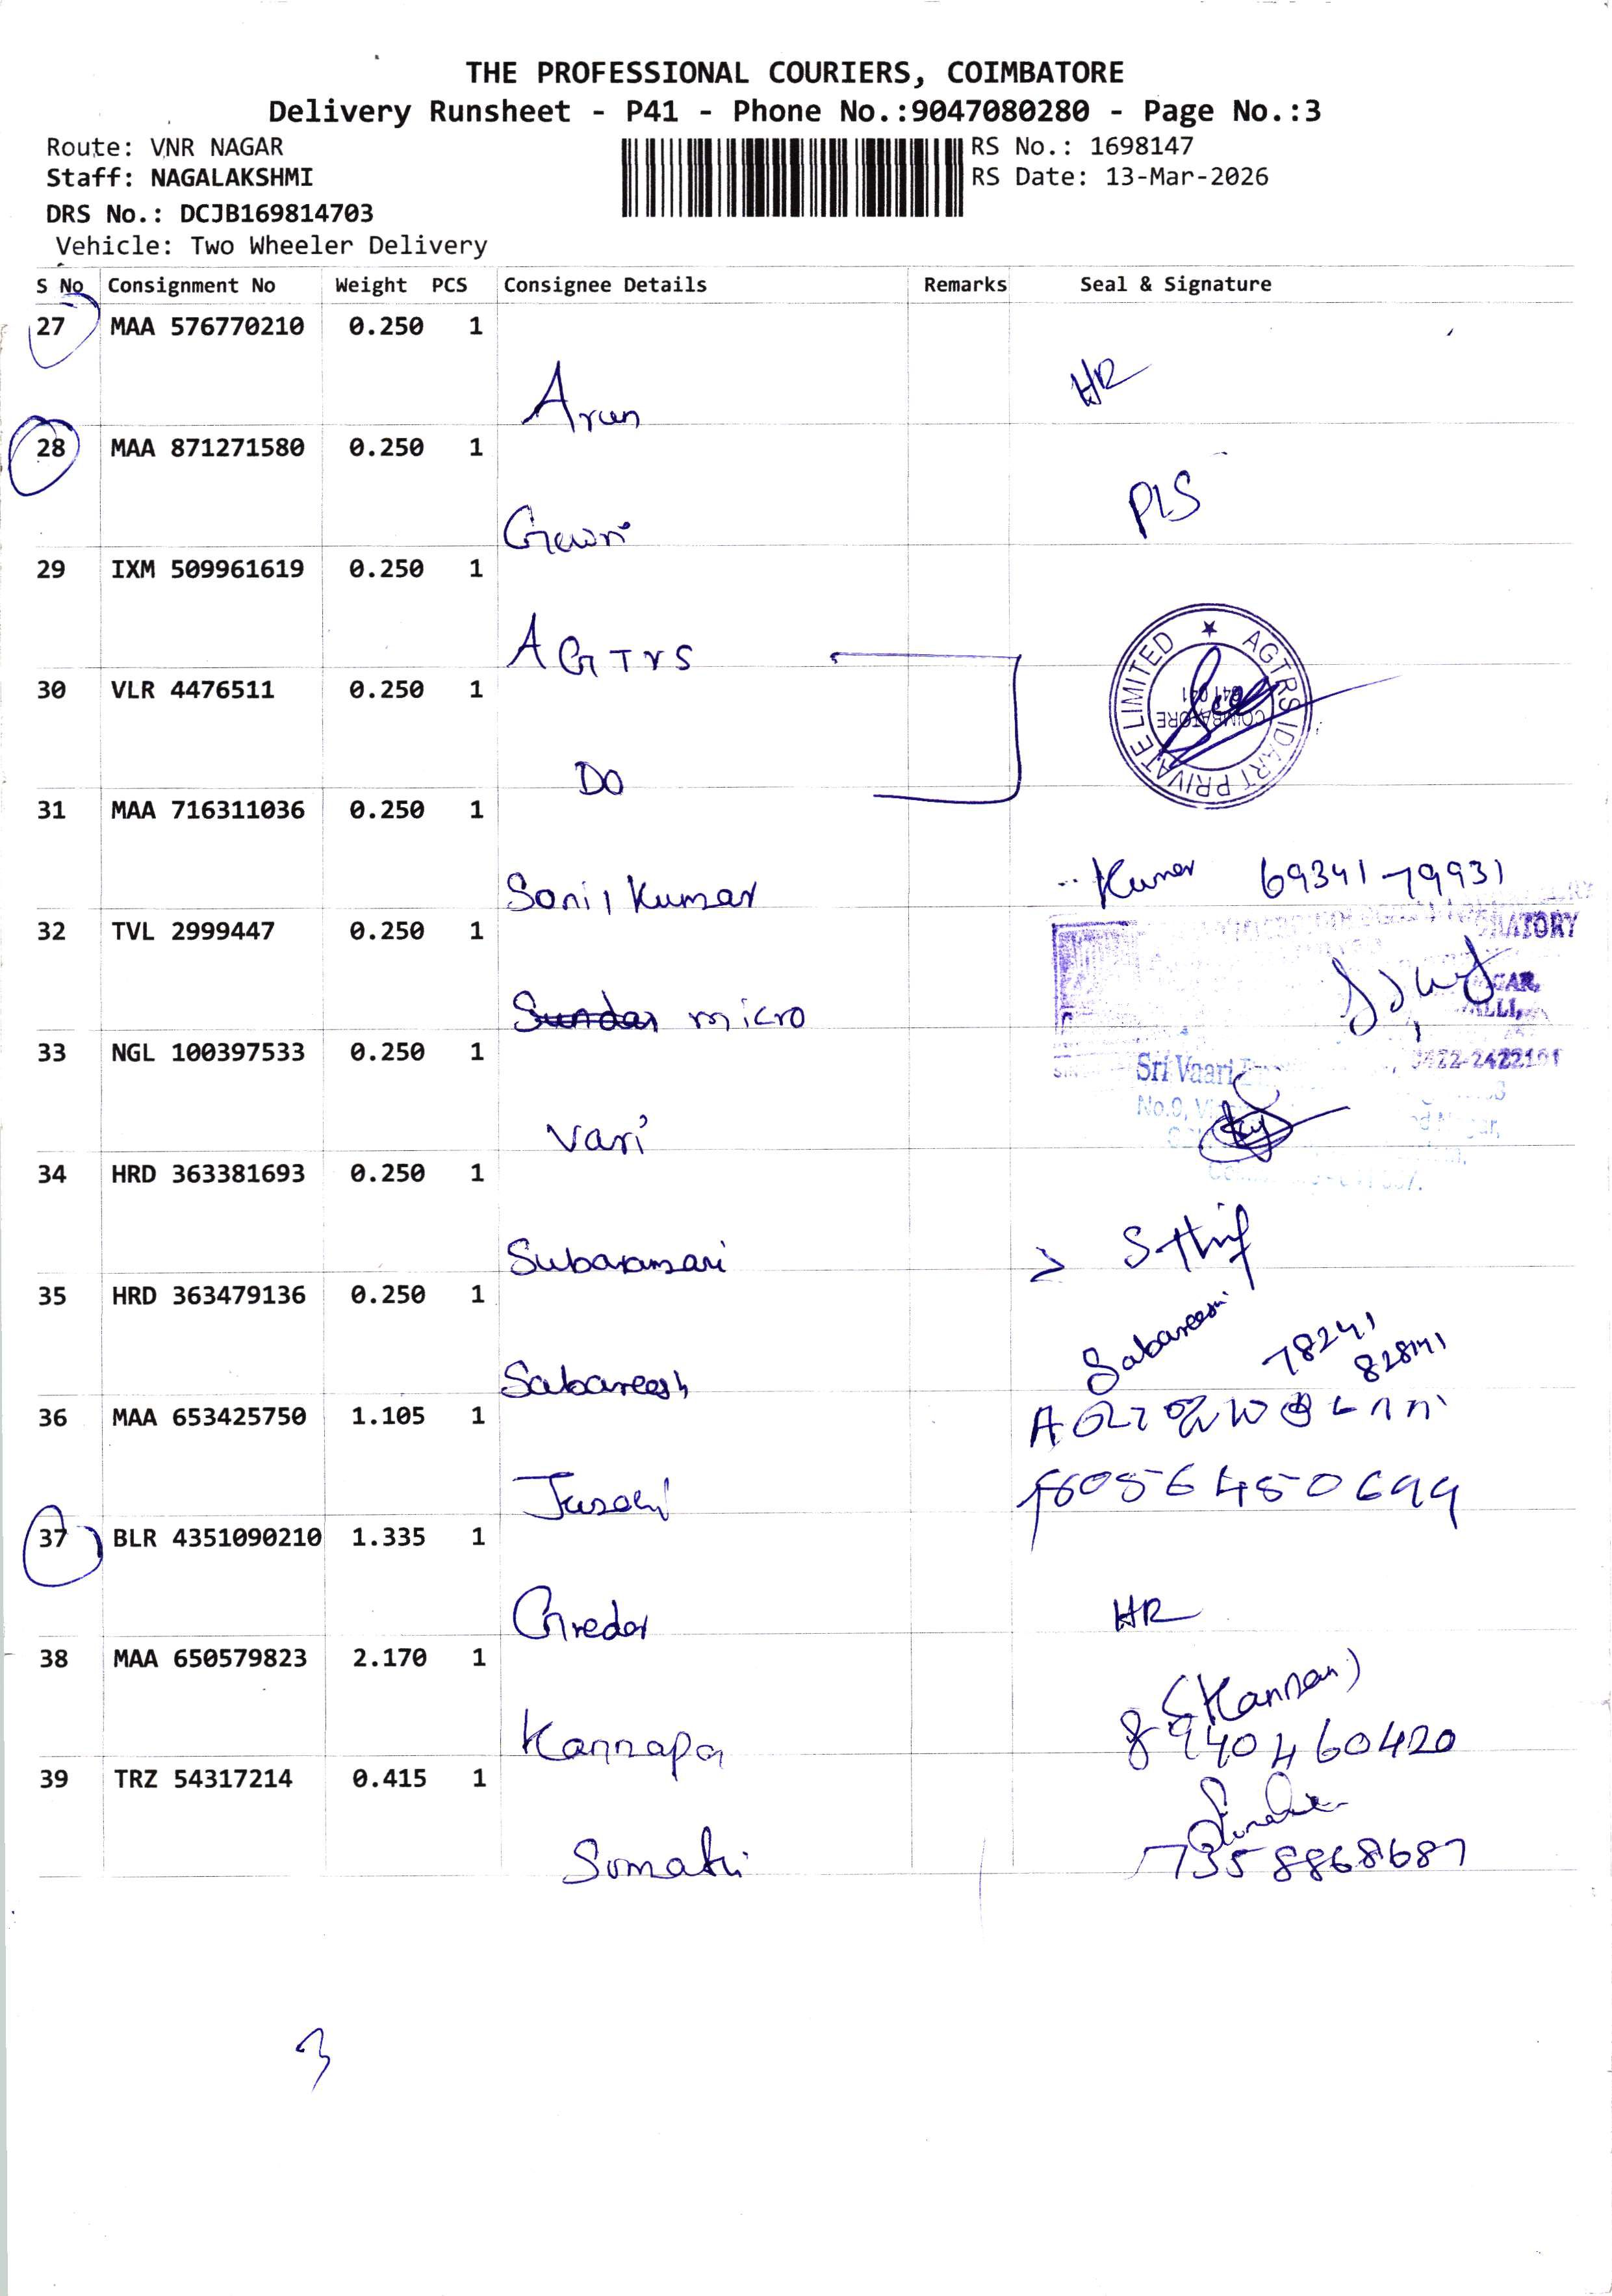 THE PROFESSIONAL COURIERS, COIMBATORE
Delivery Runsheet - P41 - Phone No.:9047080280 - Page No.:3
Route: VNR NAGAR
RS No.: 1698147
Staff: NAGALAKSHMI
RS Date: 13-Mar-2026
DRS No.: DCJB169814703
Vehicle: Two Wheeler Delivery
S No Consignment No Weight PCS Consignee Details Remarks Seal & Signature
27 MAA 576770210 0.250 1
Arun HR
28 MAA 871271580 0.250 1
PLS
29 IXM 509961619 0.250 1
AGTRS
AGTRS IDART PRIVATE LIMITED
COIMBATORE
641 041
30 VLR 4476511 0.250 1
DO
31 MAA 716311036 0.250 1
Sonil Kumar Kumar 69341 79931
32 TVL 2999447 0.250 1
Sundar micro
33 NGL 100397533 0.250 1
0422-2422101
Sri Vaari
Vari
34 HRD 363381693 0.250 1
35 HRD 363479136 0.250 1
Sabareesh
78241
36 MAA 653425750 1.105 1
37 BLR 4351090210 1.335 1
HR
38 MAA 650579823 2.170 1
(Kannan)
Kannapa 8940460420
39 TRZ 54317214 0.415 1
7358868687
3